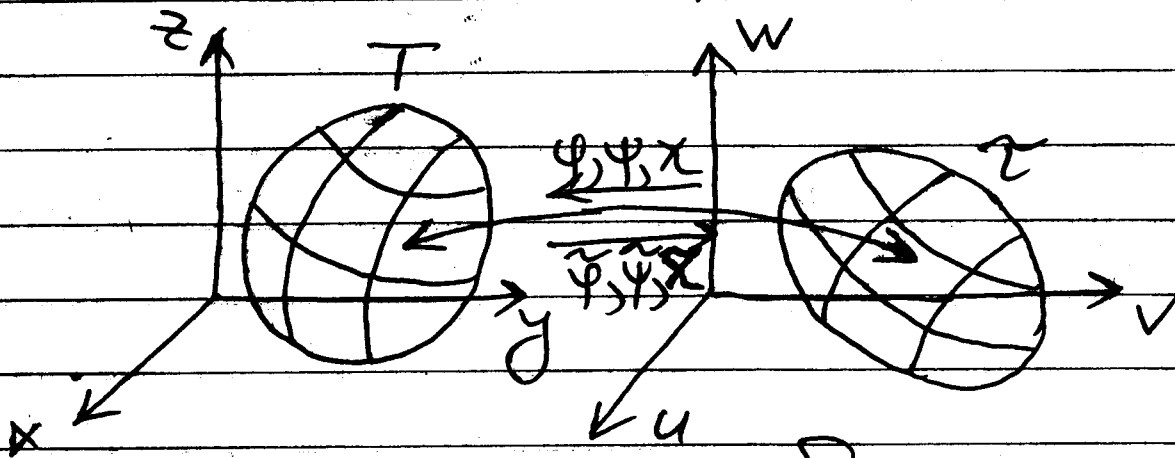 z T w
φ, ψ, χ τ
φ̃, ψ̃, χ̃
y v
x u